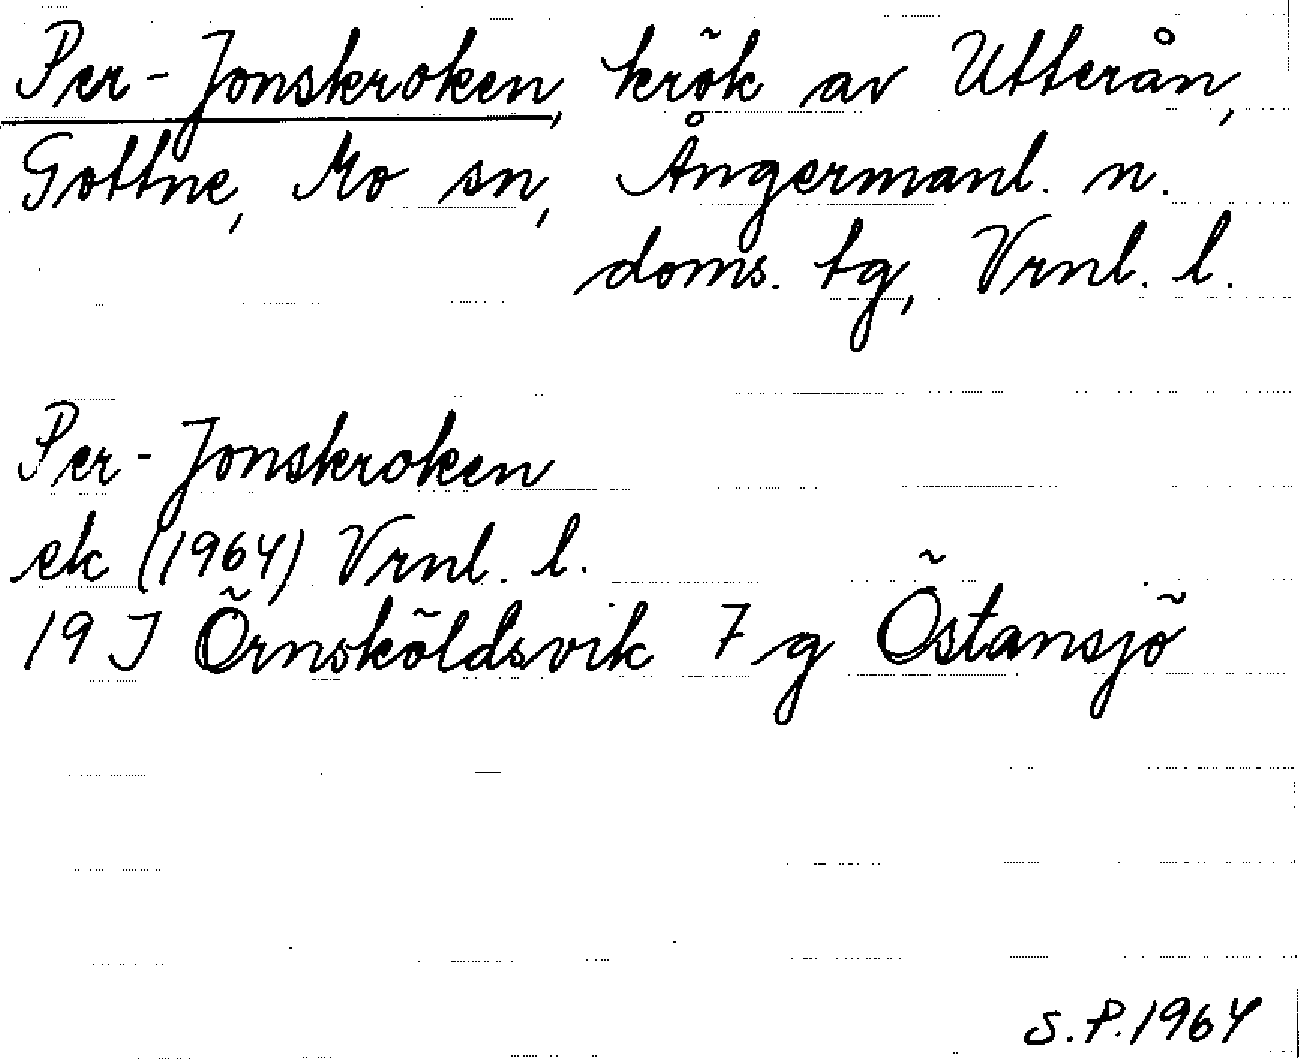 Per-Jonskroken, krök av Utterån,
Gottne, Mo sn, Ångermanl. n.
doms. tg, Vrnl. l.
Per-Jonskroken
ek (1964) Vrnl. l.
19 J Örnsköldsvik 7 g Östansjö
S.P. 1964